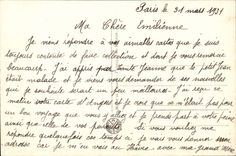 Paris le 31 mars 1921
Ma Chère Emilienne
Je viens répondre à vos aimables cartes que je suis
toujours contente de faire collection et dont je vous remercie
beaucoup. J'ai appris par Jeanne que le petit Jean
était malade et je viens vous demander de ses nouvelles
que je souhaite serait un peu meilleures. J'ai reçu ce
matin votre carte d'Angers et je vois que ce n'était pas pour
un bon voyage que vous y alliez et je prends part à votre peine
ainsi que celle de vos parents. Si vous vouliez me
répondre quelquefois ces jours ci, je vous donne mon
adresse car je m'en vais au Havre avec ma grand Mère